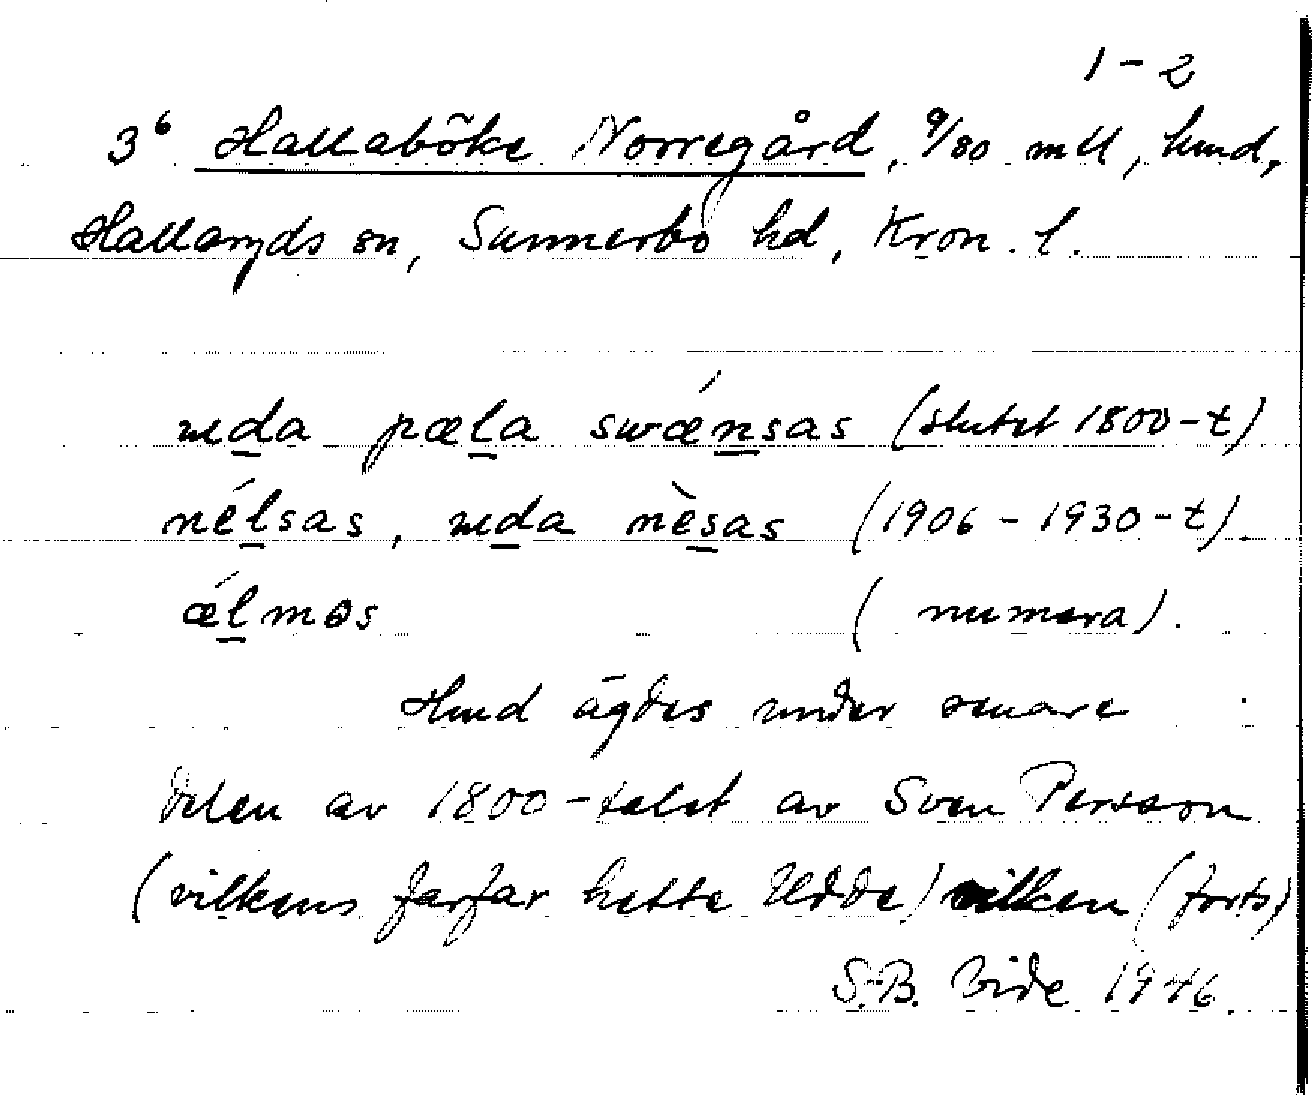 1-2
3⁶ Hallaböke Norregård, 9/80 mtl, hmd,
Hallaryds sn, Sunnerbo hd, Kron. l.
uda pæla swǽnsas (slutet 1800-t)
nélsas, uda nèsas (1906-1930-t).
ǽlməs (numera).
Hmd ägdes under senare
delen av 1800-talet av Sven Persson
(vilkens farfar hette Udde) vilken (forts)
S.-B. Vide 1946.